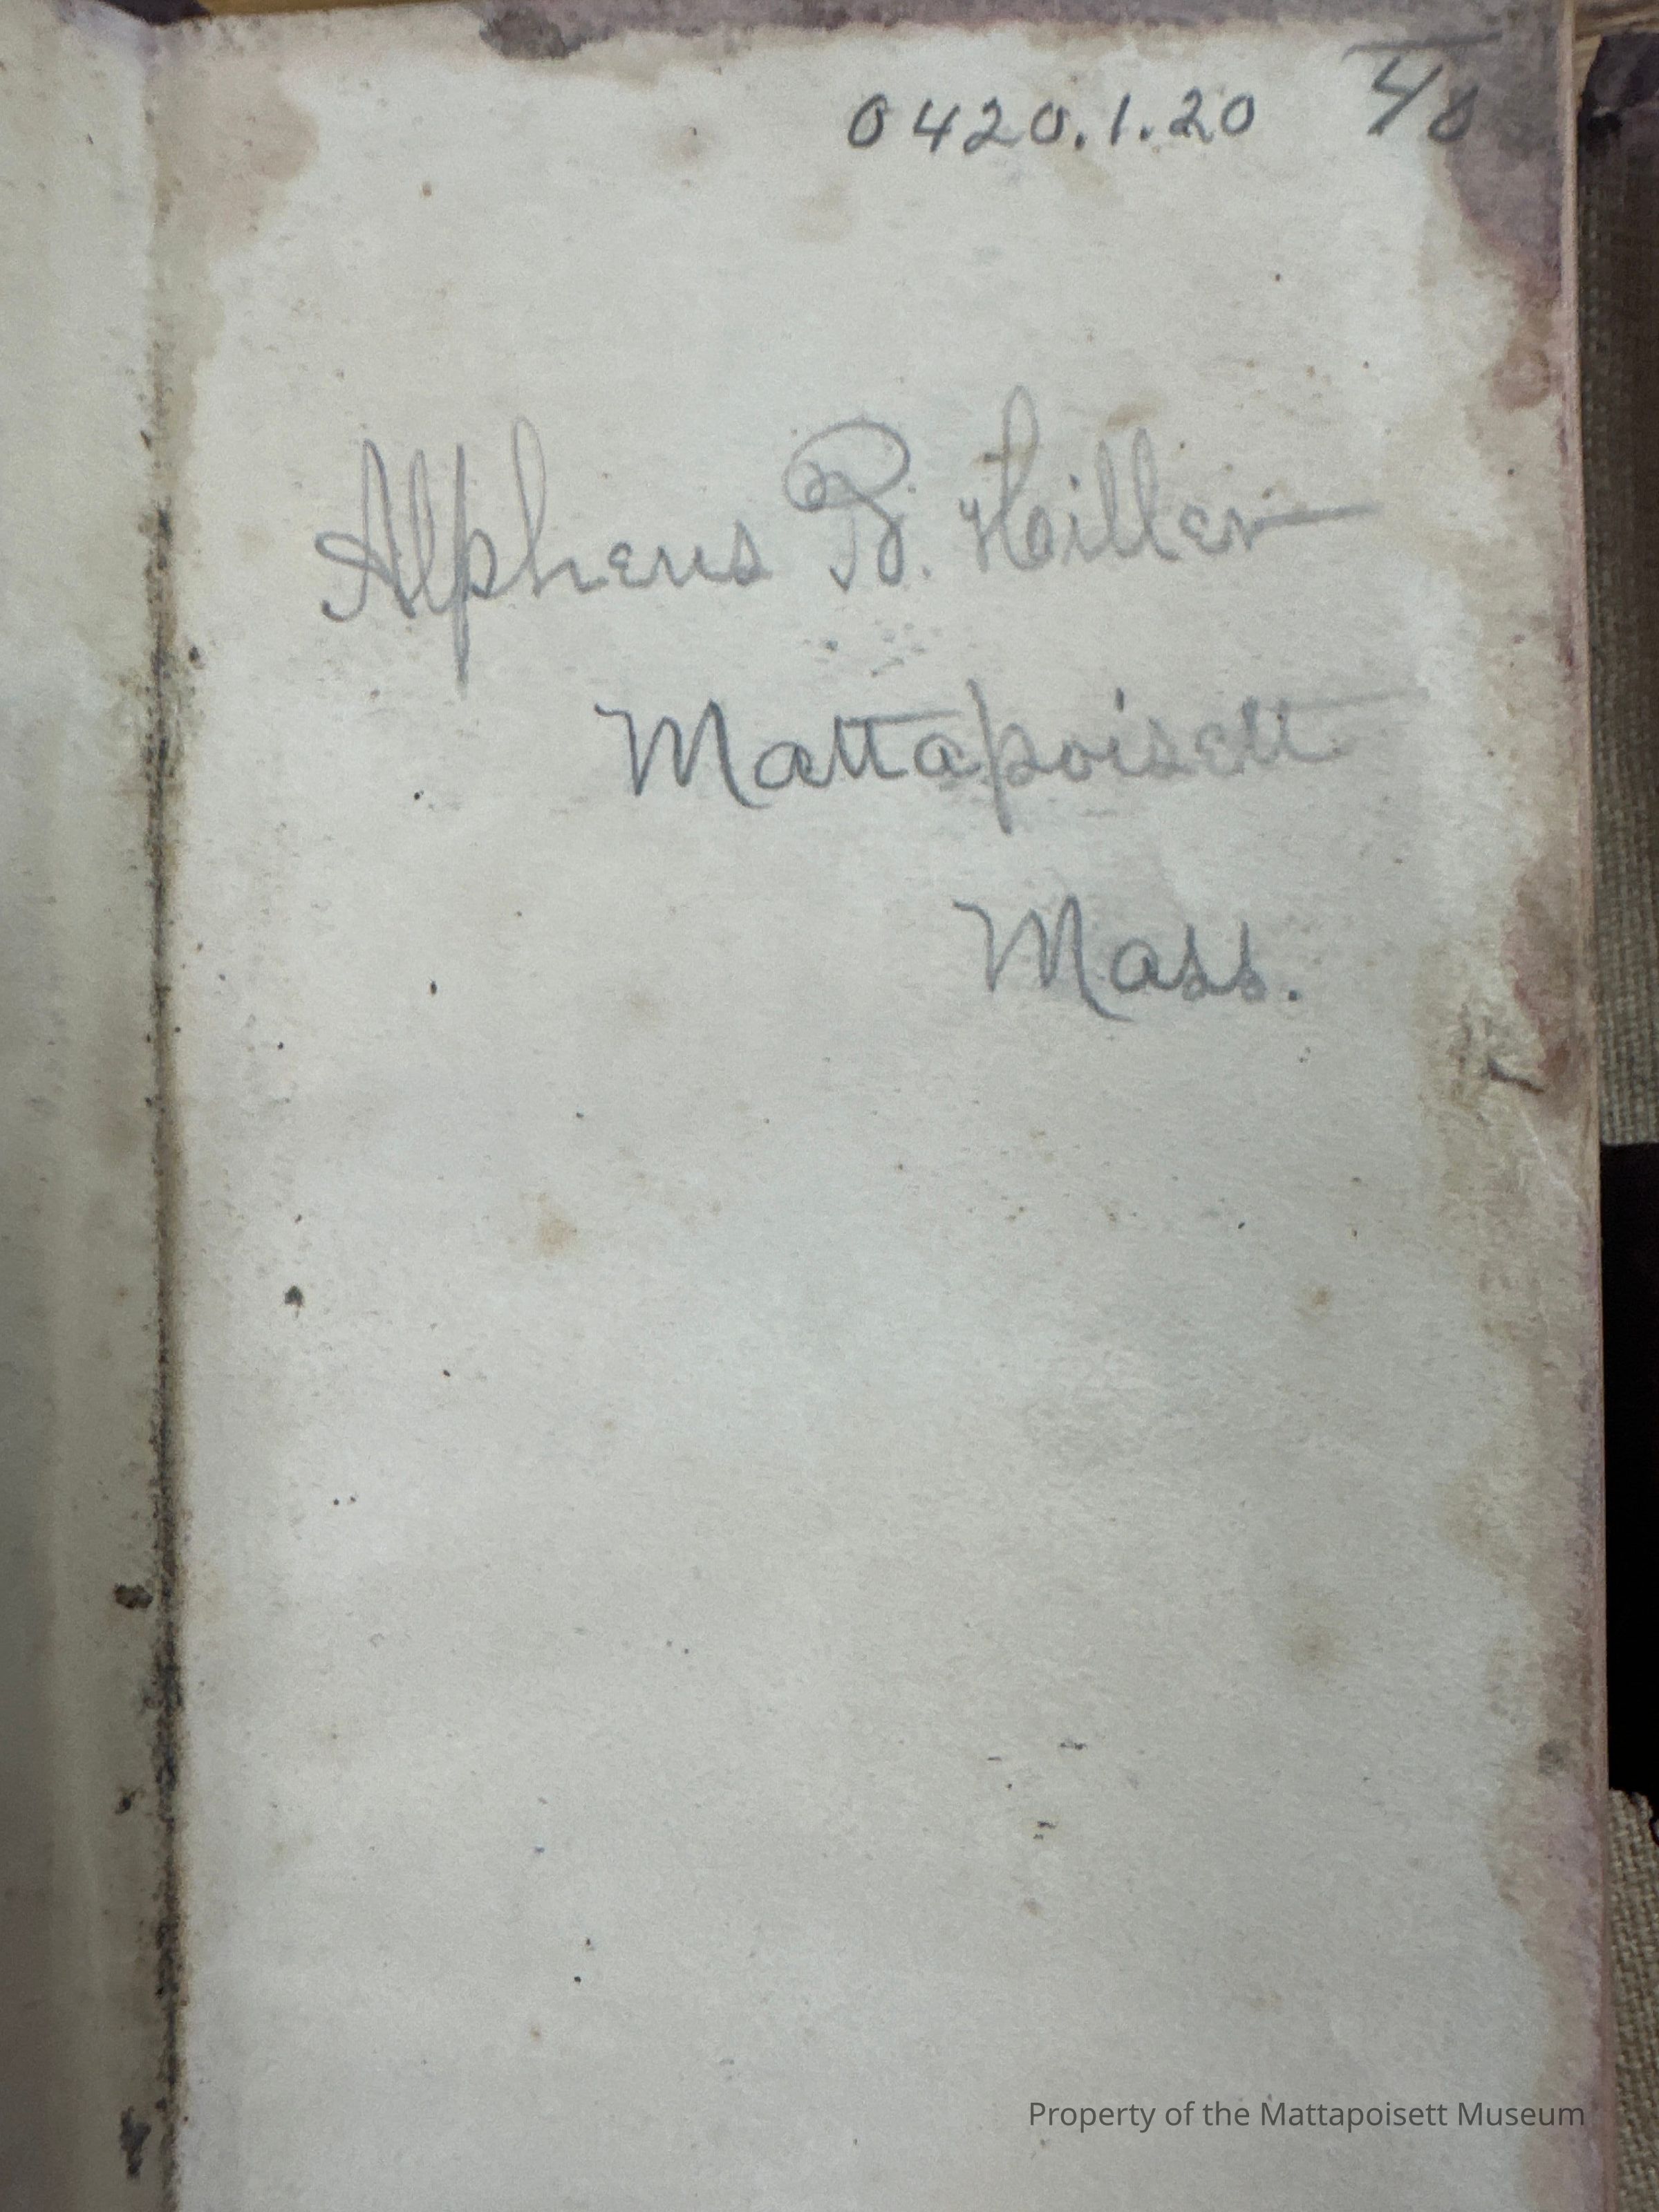 0420.1.20
Alpheus B. Hiller
Mattapoisett
Mass.
Property of the Mattapoisett Museum